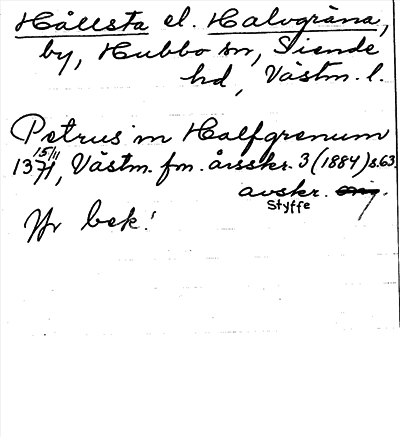 Hållsta el. Halvgräna,
by, Hubbo sn, Siende
hd, Västm. l.
Petrus in Halfgrenum
15/11
1371, Västm. fm. årsskr. 3 (1884) s. 63.
avskr. orig.
Styffe
Yr bek!